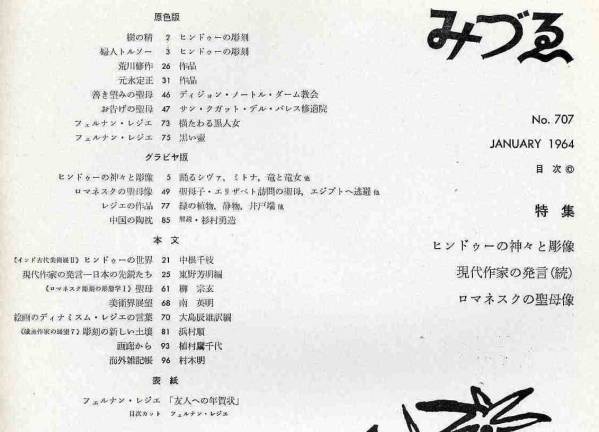 原色版
樹の精 2 ヒンドゥーの彫刻
婦人トルソー 3 ヒンドゥーの彫刻
荒川修作 26 作品
元永定正 31 作品
善き望みの聖母 46 ディジョン・ノートル・ダーム教会
お告げの聖母 47 サン・クガット・デル・バレス修道院
フェルナン・レジエ 73 横たわる黒人女
フェルナン・レジエ 75 黒い壷
グラビヤ版
ヒンドゥーの神々と彫像 5 踊るシヴァ, ミトナ, 竜と竜女 他
ロマネスクの聖母像 49 聖母子・エリザベト訪問の聖母, エジプトへ逃避 他
レジエの作品 77 緑の植物, 静物, 井戸端 他
中国の陶枕 85 解説・杉村勇造
本文
《インド古代美術展Ⅱ》ヒンドゥーの世界 21 中根千枝
現代作家の発言―日本の先鋭たち 25 東野芳明編
《ロマネスク彫刻の形態学1》聖母 61 柳 宗玄
美術界展望 68 南 英明
絵画のディナミスム・レジエの言葉 70 大島辰雄訳編
彫刻の新しい土壌 81 浜村順
画廊から 93 植村鷹千代
海外雑記帳 96 村木明
表紙
フェルナン・レジエ 「友人への年賀状」
目次カット フェルナン・レジエ
みづゑ
No. 707
JANUARY 1964
目次©
特集
ヒンドゥーの神々と彫像
現代作家の発言(続)
ロマネスクの聖母像